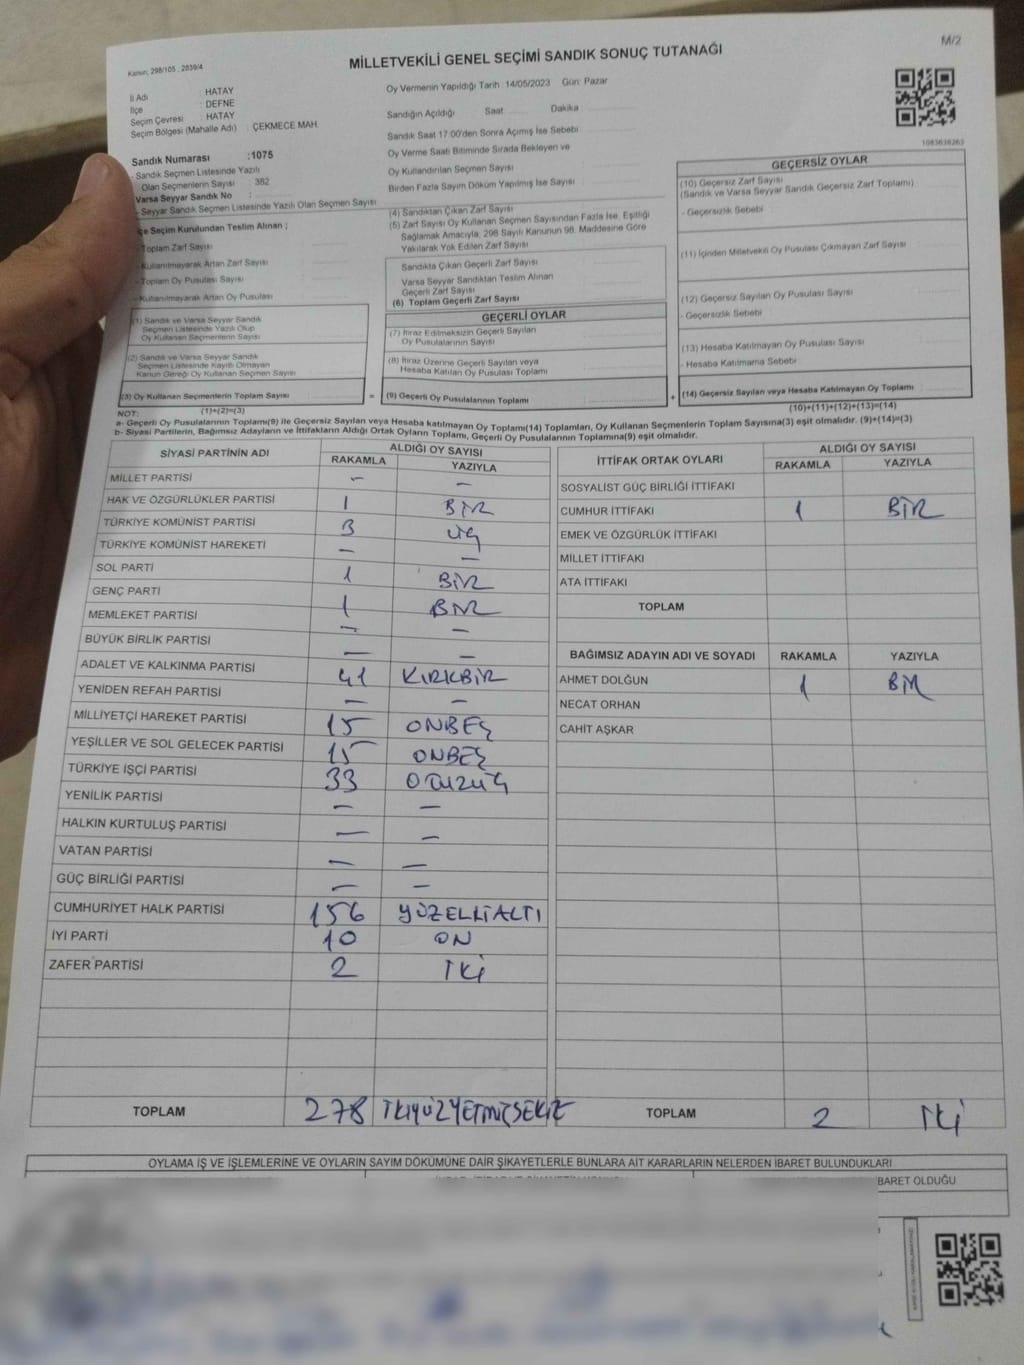 M/2
MİLLETVEKİLİ GENEL SEÇİMİ SANDIK SONUÇ TUTANAĞI
Kanun; 298/105 , 2839/4
İl Adı : HATAY
İlçe : DEFNE
Seçim Çevresi : HATAY
Seçim Bölgesi (Mahalle Adı) : ÇEKMECE MAH.
Sandık Numarası :1075
- Sandık Seçmen Listesinde Yazılı
Olan Seçmenlerin Sayısı : 382
Varsa Seyyar Sandık No :
- Seyyar Sandık Seçmen Listesinde Yazılı Olan Seçmen Sayısı
İlçe Seçim Kurulundan Teslim Alınan ;
- Toplam Zarf Sayısı
- Kullanılmayarak Artan Zarf Sayısı
- Toplam Oy Pusulası Sayısı
- Kullanılmayarak Artan Oy Pusulası
(1) Sandık ve Varsa Seyyar Sandık
Seçmen Listesinde Yazılı Olup
Oy Kullanan Seçmenlerin Sayısı
(2) Sandık ve Varsa Seyyar Sandık
Seçmen Listesinde Kayıtlı Olmayan
Kanun Gereği Oy Kullanan Seçmen Sayısı
(3) Oy Kullanan Seçmenlerin Toplam Sayısı
(1)+(2)=(3)
Oy Vermenin Yapıldığı Tarih :14/05/2023 Gün: Pazar
Sandığın Açıldığı Saat Dakika
Sandık Saat 17:00'den Sonra Açımış İse Sebebi
Oy Verme Saati Bitiminde Sırada Bekleyen ve
Oy Kullandırılan Seçmen Sayısı
Birden Fazla Sayım Döküm Yapılmış İse Sayısı
(4) Sandıktan Çıkan Zarf Sayısı
(5) Zarf Sayısı Oy Kullanan Seçmen Sayısından Fazla İse, Eşitliği
Sağlamak Amacıyla; 298 Sayılı Kanunun 98. Maddesine Göre
Yakılarak Yok Edilen Zarf Sayısı
Sandıkta Çıkan Geçerli Zarf Sayısı
Varsa Seyyar Sandıktan Teslim Alınan
Geçerli Zarf Sayısı
(6) Toplam Geçerli Zarf Sayısı
GEÇERLİ OYLAR
(7) İtiraz Edilmeksizin Geçerli Sayılan
Oy Pusulalarının Sayısı
(8) İtiraz Üzerine Geçerli Sayılan veya
Hesaba Katılan Oy Pusulası Toplamı
= (9) Geçerli Oy Pusulalarının Toplamı
1083638263
GEÇERSİZ OYLAR
(10) Geçersiz Zarf Sayısı
(Sandık ve Varsa Seyyar Sandık Geçersiz Zarf Toplamı)
- Geçersizlik Sebebi
(11) İçinden Milletvekili Oy Pusulası Çıkmayan Zarf Sayısı
(12) Geçersiz Sayılan Oy Pusulası Sayısı
- Geçersizlik Sebebi
(13) Hesaba Katılmayan Oy Pusulası Sayısı
- Hesaba Katılmama Sebebi
+ (14) Geçersiz Sayılan veya Hesaba Katılmayan Oy Toplamı
(10)+(11)+(12)+(13)=(14)
NOT:
a- Geçerli Oy Pusulalarının Toplamı(9) ile Geçersiz Sayılan veya Hesaba katılmayan Oy Toplamı(14) Toplamları, Oy Kullanan Seçmenlerin Toplam Sayısına(3) eşit olmalıdır. (9)+(14)=(3)
b- Siyasi Partilerin, Bağımsız Adayların ve İttifakların Aldığı Ortak Oyların Toplamı, Geçerli Oy Pusulalarının Toplamına(9) eşit olmalıdır.
SİYASİ PARTİNİN ADI ALDIĞI OY SAYISI
RAKAMLA YAZIYLA
MİLLET PARTİSİ - -
HAK VE ÖZGÜRLÜKLER PARTİSİ 1 BİR
TÜRKİYE KOMÜNİST PARTİSİ 3 ÜÇ
TÜRKİYE KOMÜNİST HAREKETİ - -
SOL PARTİ 1 BİR
GENÇ PARTİ 1 BİR
MEMLEKET PARTİSİ - -
BÜYÜK BİRLİK PARTİSİ - -
ADALET VE KALKINMA PARTİSİ 41 KIRKBİR
YENİDEN REFAH PARTİSİ - -
MİLLİYETÇİ HAREKET PARTİSİ 15 ONBEŞ
YEŞİLLER VE SOL GELECEK PARTİSİ 15 ONBEŞ
TÜRKİYE İŞÇİ PARTİSİ 33 OTUZÜÇ
YENİLİK PARTİSİ - -
HALKIN KURTULUŞ PARTİSİ - -
VATAN PARTİSİ - -
GÜÇ BİRLİĞİ PARTİSİ - -
CUMHURİYET HALK PARTİSİ 156 YÜZELLİALTI
İYİ PARTİ 10 ON
ZAFER PARTİSİ 2 İKİ
TOPLAM 278 İKİYÜZYETMİŞSEKİZ
İTTİFAK ORTAK OYLARI ALDIĞI OY SAYISI
RAKAMLA YAZIYLA
SOSYALIST GÜÇ BİRLİĞİ İTTİFAKI
CUMHUR İTTİFAKI 1 BİR
EMEK VE ÖZGÜRLÜK İTTİFAKI
MİLLET İTTİFAKI
ATA İTTİFAKI
TOPLAM
BAĞIMSIZ ADAYIN ADI VE SOYADI RAKAMLA YAZIYLA
AHMET DOLĞUN 1 BİR
NECAT ORHAN
CAHİT AŞKAR
TOPLAM 2 İKİ
OYLAMA İŞ VE İŞLEMLERİNE VE OYLARIN SAYIM DÖKÜMÜNE DAİR ŞİKAYETLERLE BUNLARA AİT KARARLARIN NELERDEN İBARET BULUNDUKLARI
BARET OLDUĞU